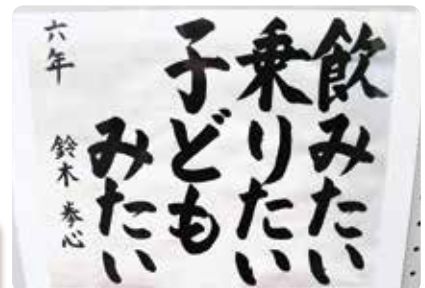 飲みたい
乗りたい
子ども
みたい
六年
鈴木 泰心